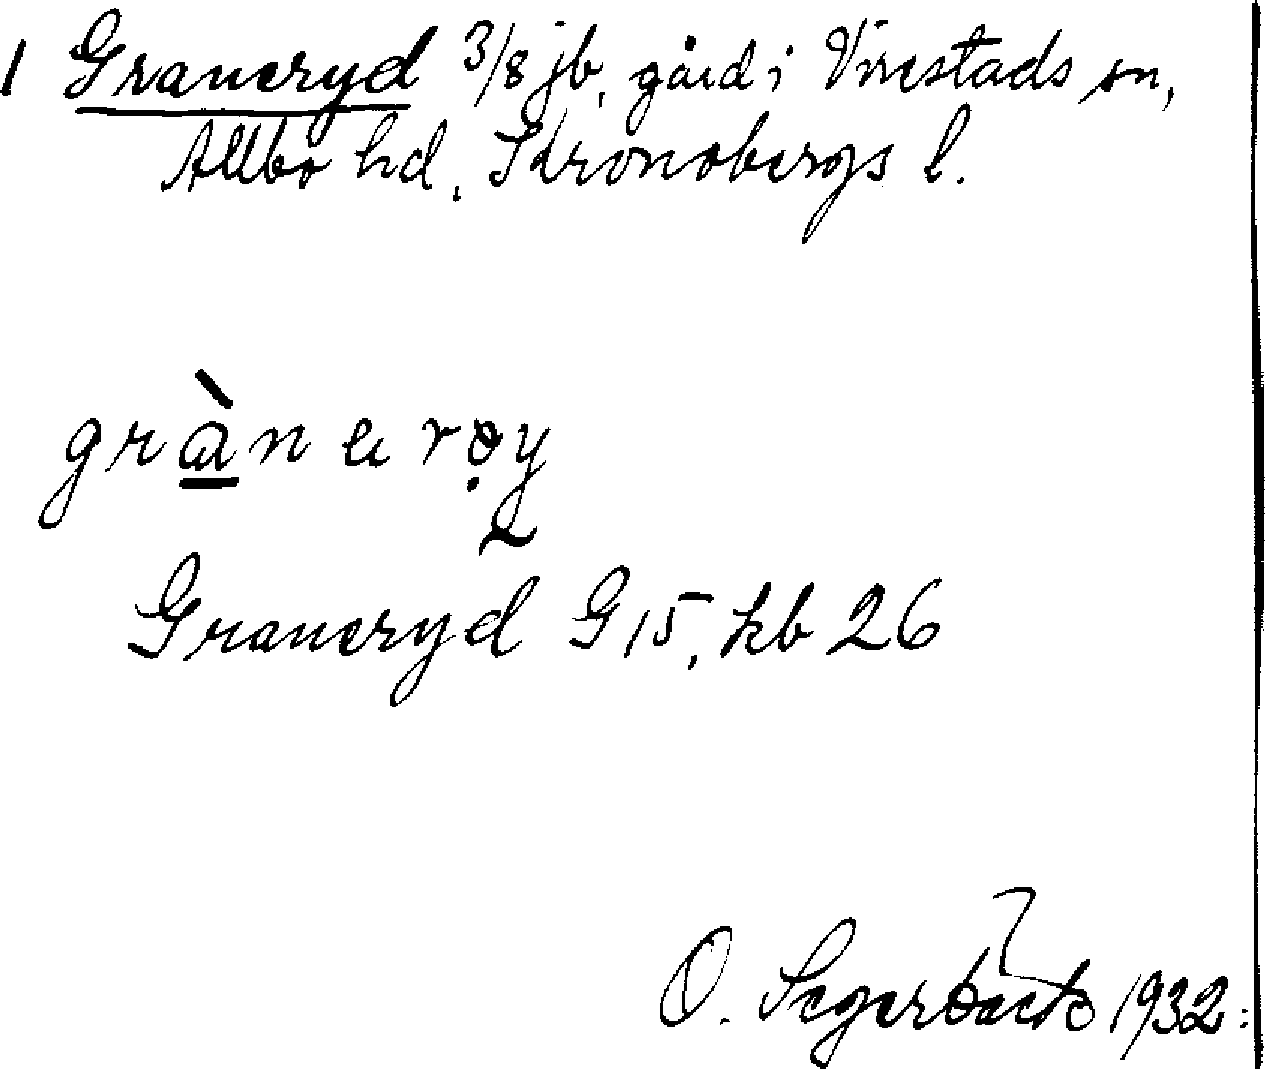 1 Graneryd 3/8 jb, gård i Virestads sn,
Allbo hd, Kronobergs l.
Graneryd G 15, kb 26
O. Segerbäck 1932.